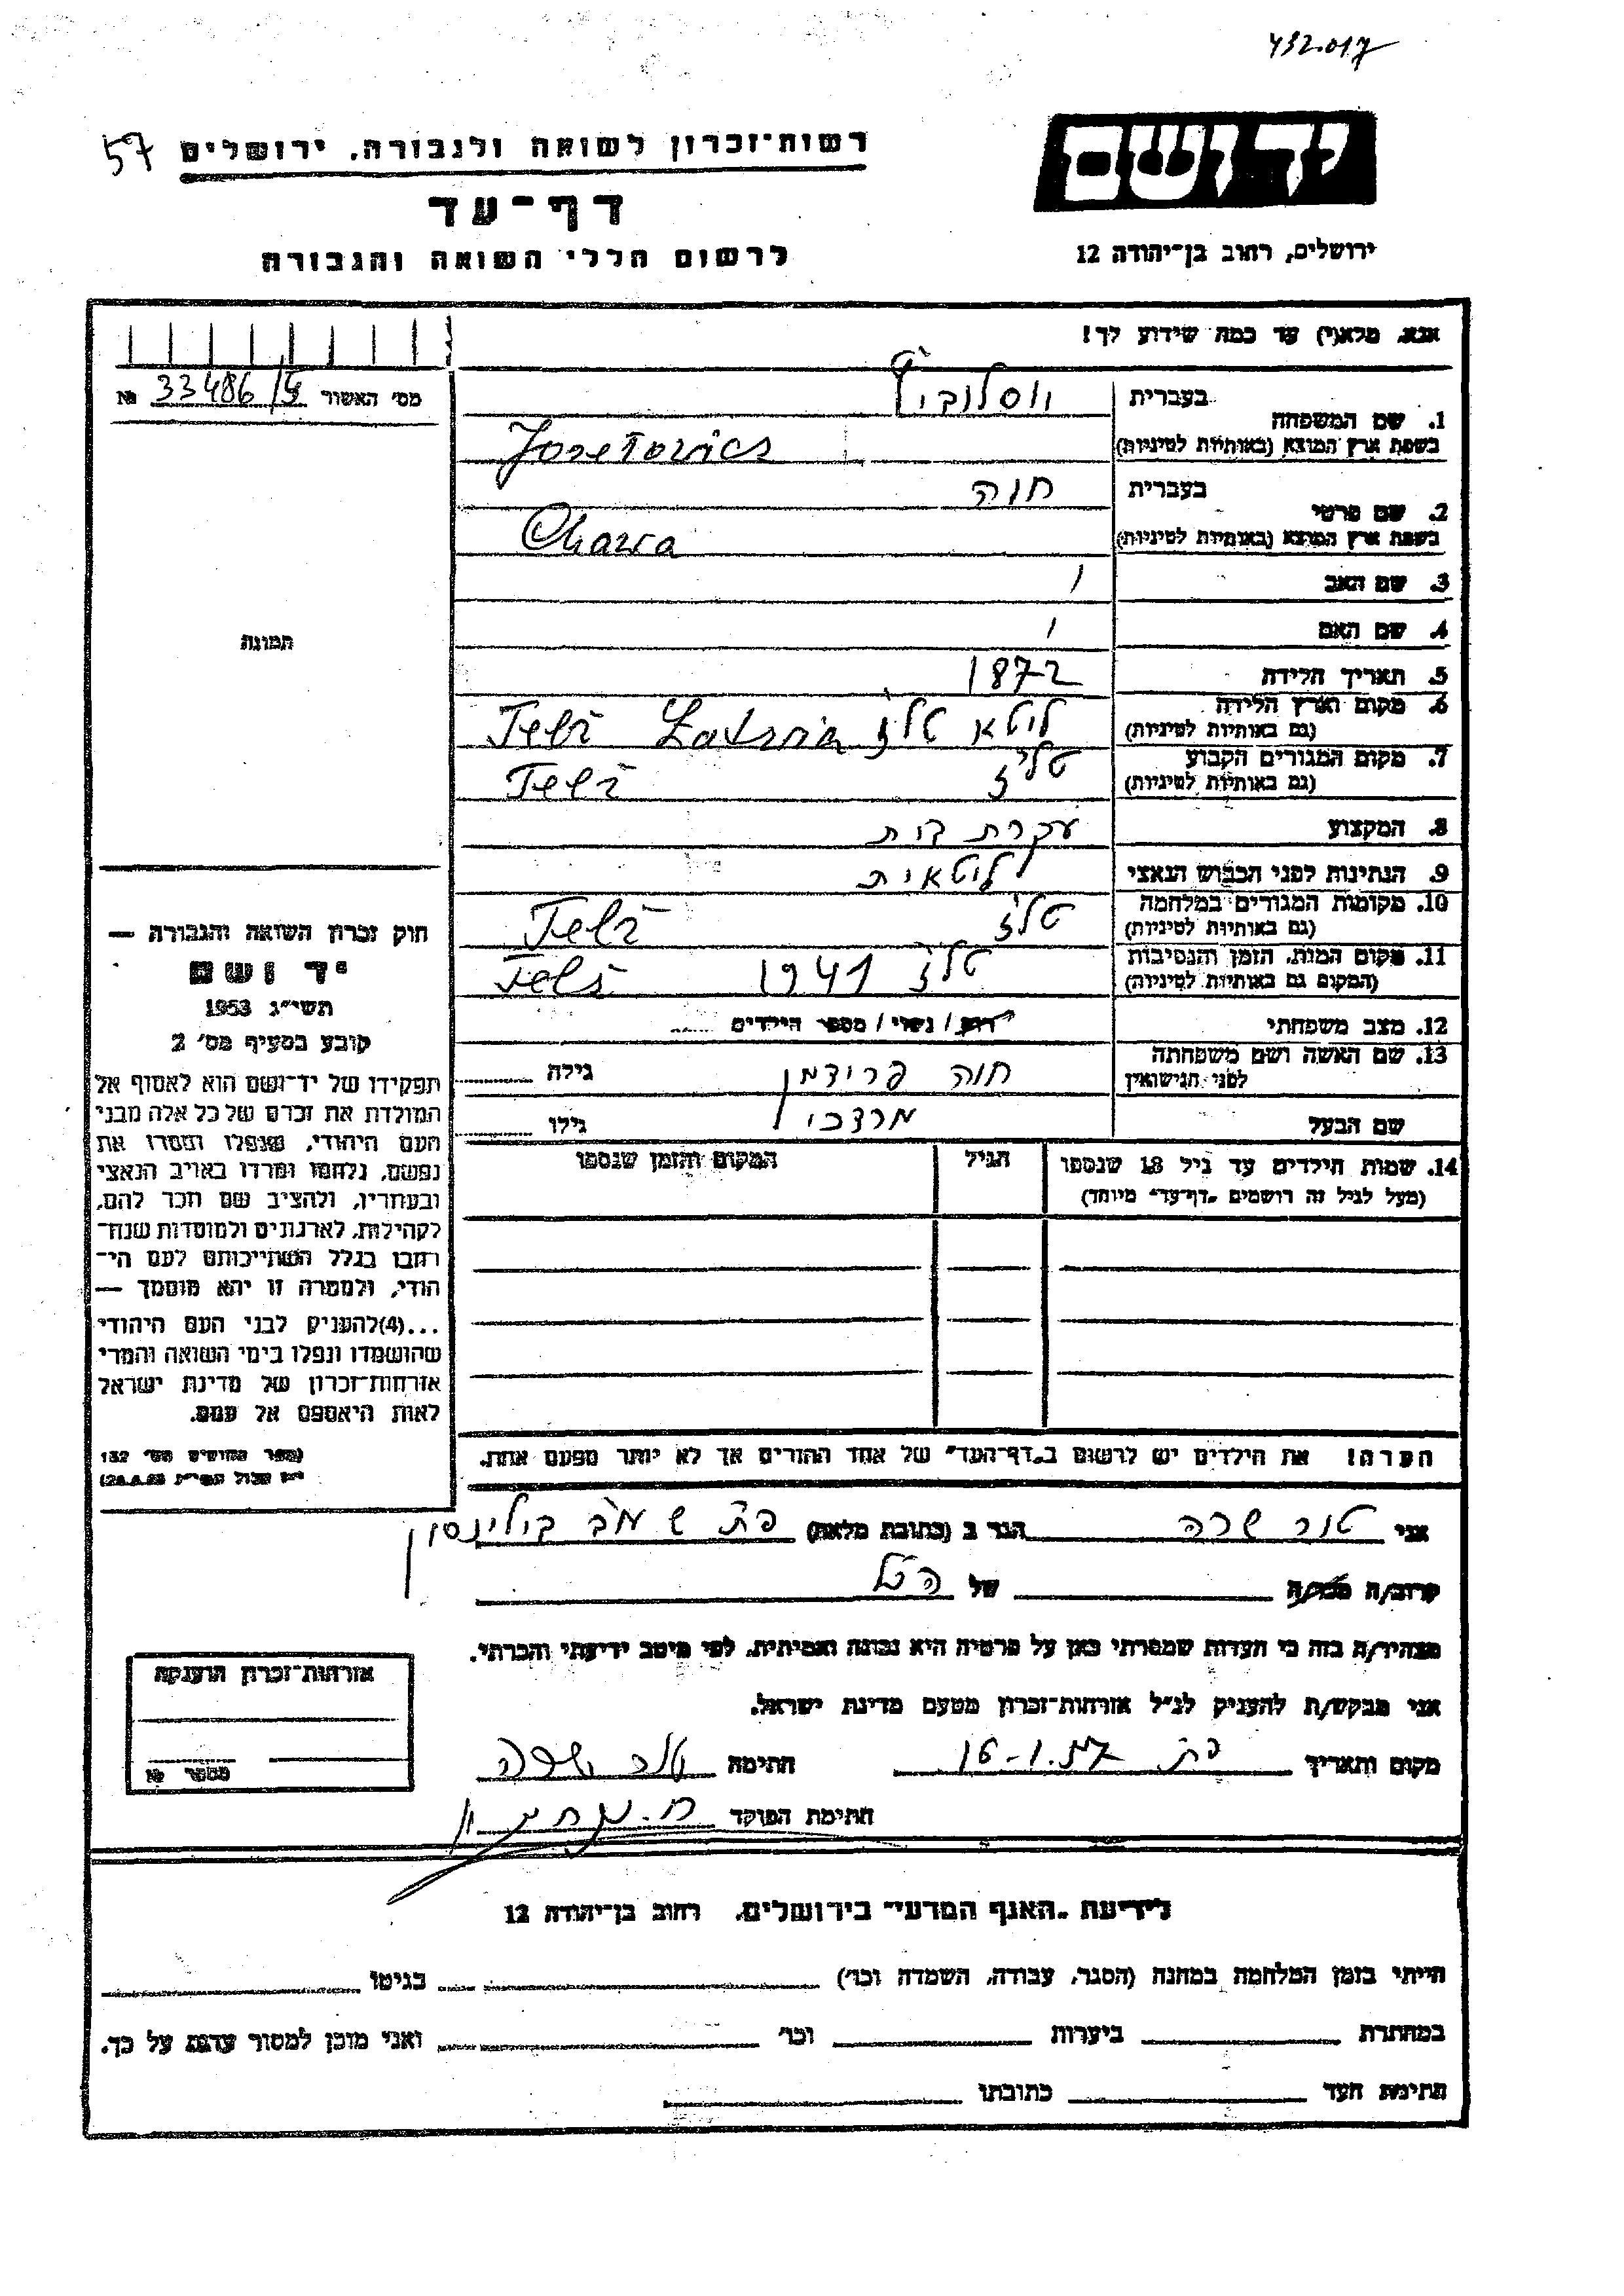 432.017
יד ושם
ירושלים, רחוב בן־יהודה 12
57
רשות־זכרון לשואה ולגבורה, ירושלים
דף־עד
לרשום חללי השואה והגבורה
אנא, מלא(י) עד כמה שידוע לך!
מס' האשור 33486/ №
בעברית
1. שם המשפחה
בשפת ארץ המוצא (באותיות לטיניות)
בעברית חוה
2. שם פרטי
בשפת ארץ המוצא (באותיות לטיניות) Chawa
3. שם האב /
4. שם האם /
5. תאריך הלידה 1872
6. מקום וארץ הלידה
(גם באותיות לטיניות) ליטא טלז Telz
7. מקום המגורים הקבוע
(גם באותיות לטיניות) טלז Telz
8. המקצוע עקרת בית
9. הנתינות לפני הכבוש הנאצי ליטאית
10. מקומות המגורים במלחמה
(גם באותיות לטיניות) טלז Telz
11. מקום המות, הזמן והנסיבות
(המקום גם באותיות לטיניות) טלז 1941 Telz
12. מצב משפחתי רווק/נשוי/מספר הילדים
13. שם האשה ושם משפחתה
לפני הנישואין חוה פרידמן גילה
שם הבעל מרדכי גילו
14. שמות הילדים עד גיל 18 שנספו
(מעל לגיל זה רושמים "דף־עד" מיוחד)
הגיל
המקום והזמן שנספו
הערה! את הילדים יש לרשום ב"דף־העד" של אחד ההורים אך לא יותר מפעם אחת.
תמונה
חוק זכרון השואה והגבורה —
יד ושם
תשי"ג 1953
קובע בסעיף מס' 2
תפקידו של יד־ושם הוא לאסוף אל
המולדת את זכרם של כל אלה מבני
העם היהודי, שנפלו ומסרו את
נפשם, נלחמו ומרדו באויב הנאצי
ובעוזריו, ולהציב שם וזכר להם,
לקהילות, לארגונים ולמוסדות שנח־
רבו בגלל השתייכותם לעם הי־
הודי, ולמטרה זו יהא מוסמך —
...(4)להעניק לבני העם היהודי
שהושמדו ונפלו בימי השואה והמרי
אזרחות־זכרון של מדינת ישראל
לאות היאספם אל עמם.
(ספר החוקים מס' 132
אני שרה הגר ב (כתובת מלאה) פת בילינסון
קרוב/ה מכר/ה של הנ"ל
מצהיר/ה בזה כי העדות שמסרתי כאן על פרטיה היא נכונה ואמיתית, לפי מיטב ידיעתי והכרתי.
אני מבקש/ת להעניק לנ"ל אזרחות־זכרון מטעם מדינת ישראל.
מקום ותאריך פת חתימה
חתימת הפוקד
אזרחות־זכרון הוענקה
מספר №
לידיעת "האגף המדעי" בירושלים, רחוב בן־יהודה 12
הייתי בזמן המלחמה במחנה (הסגר, עבודה, השמדה וכו') בגיטו
במחתרת ביערות וכו' ואני מוכן למסור עדות על כך.
חתימת העד כתובתו